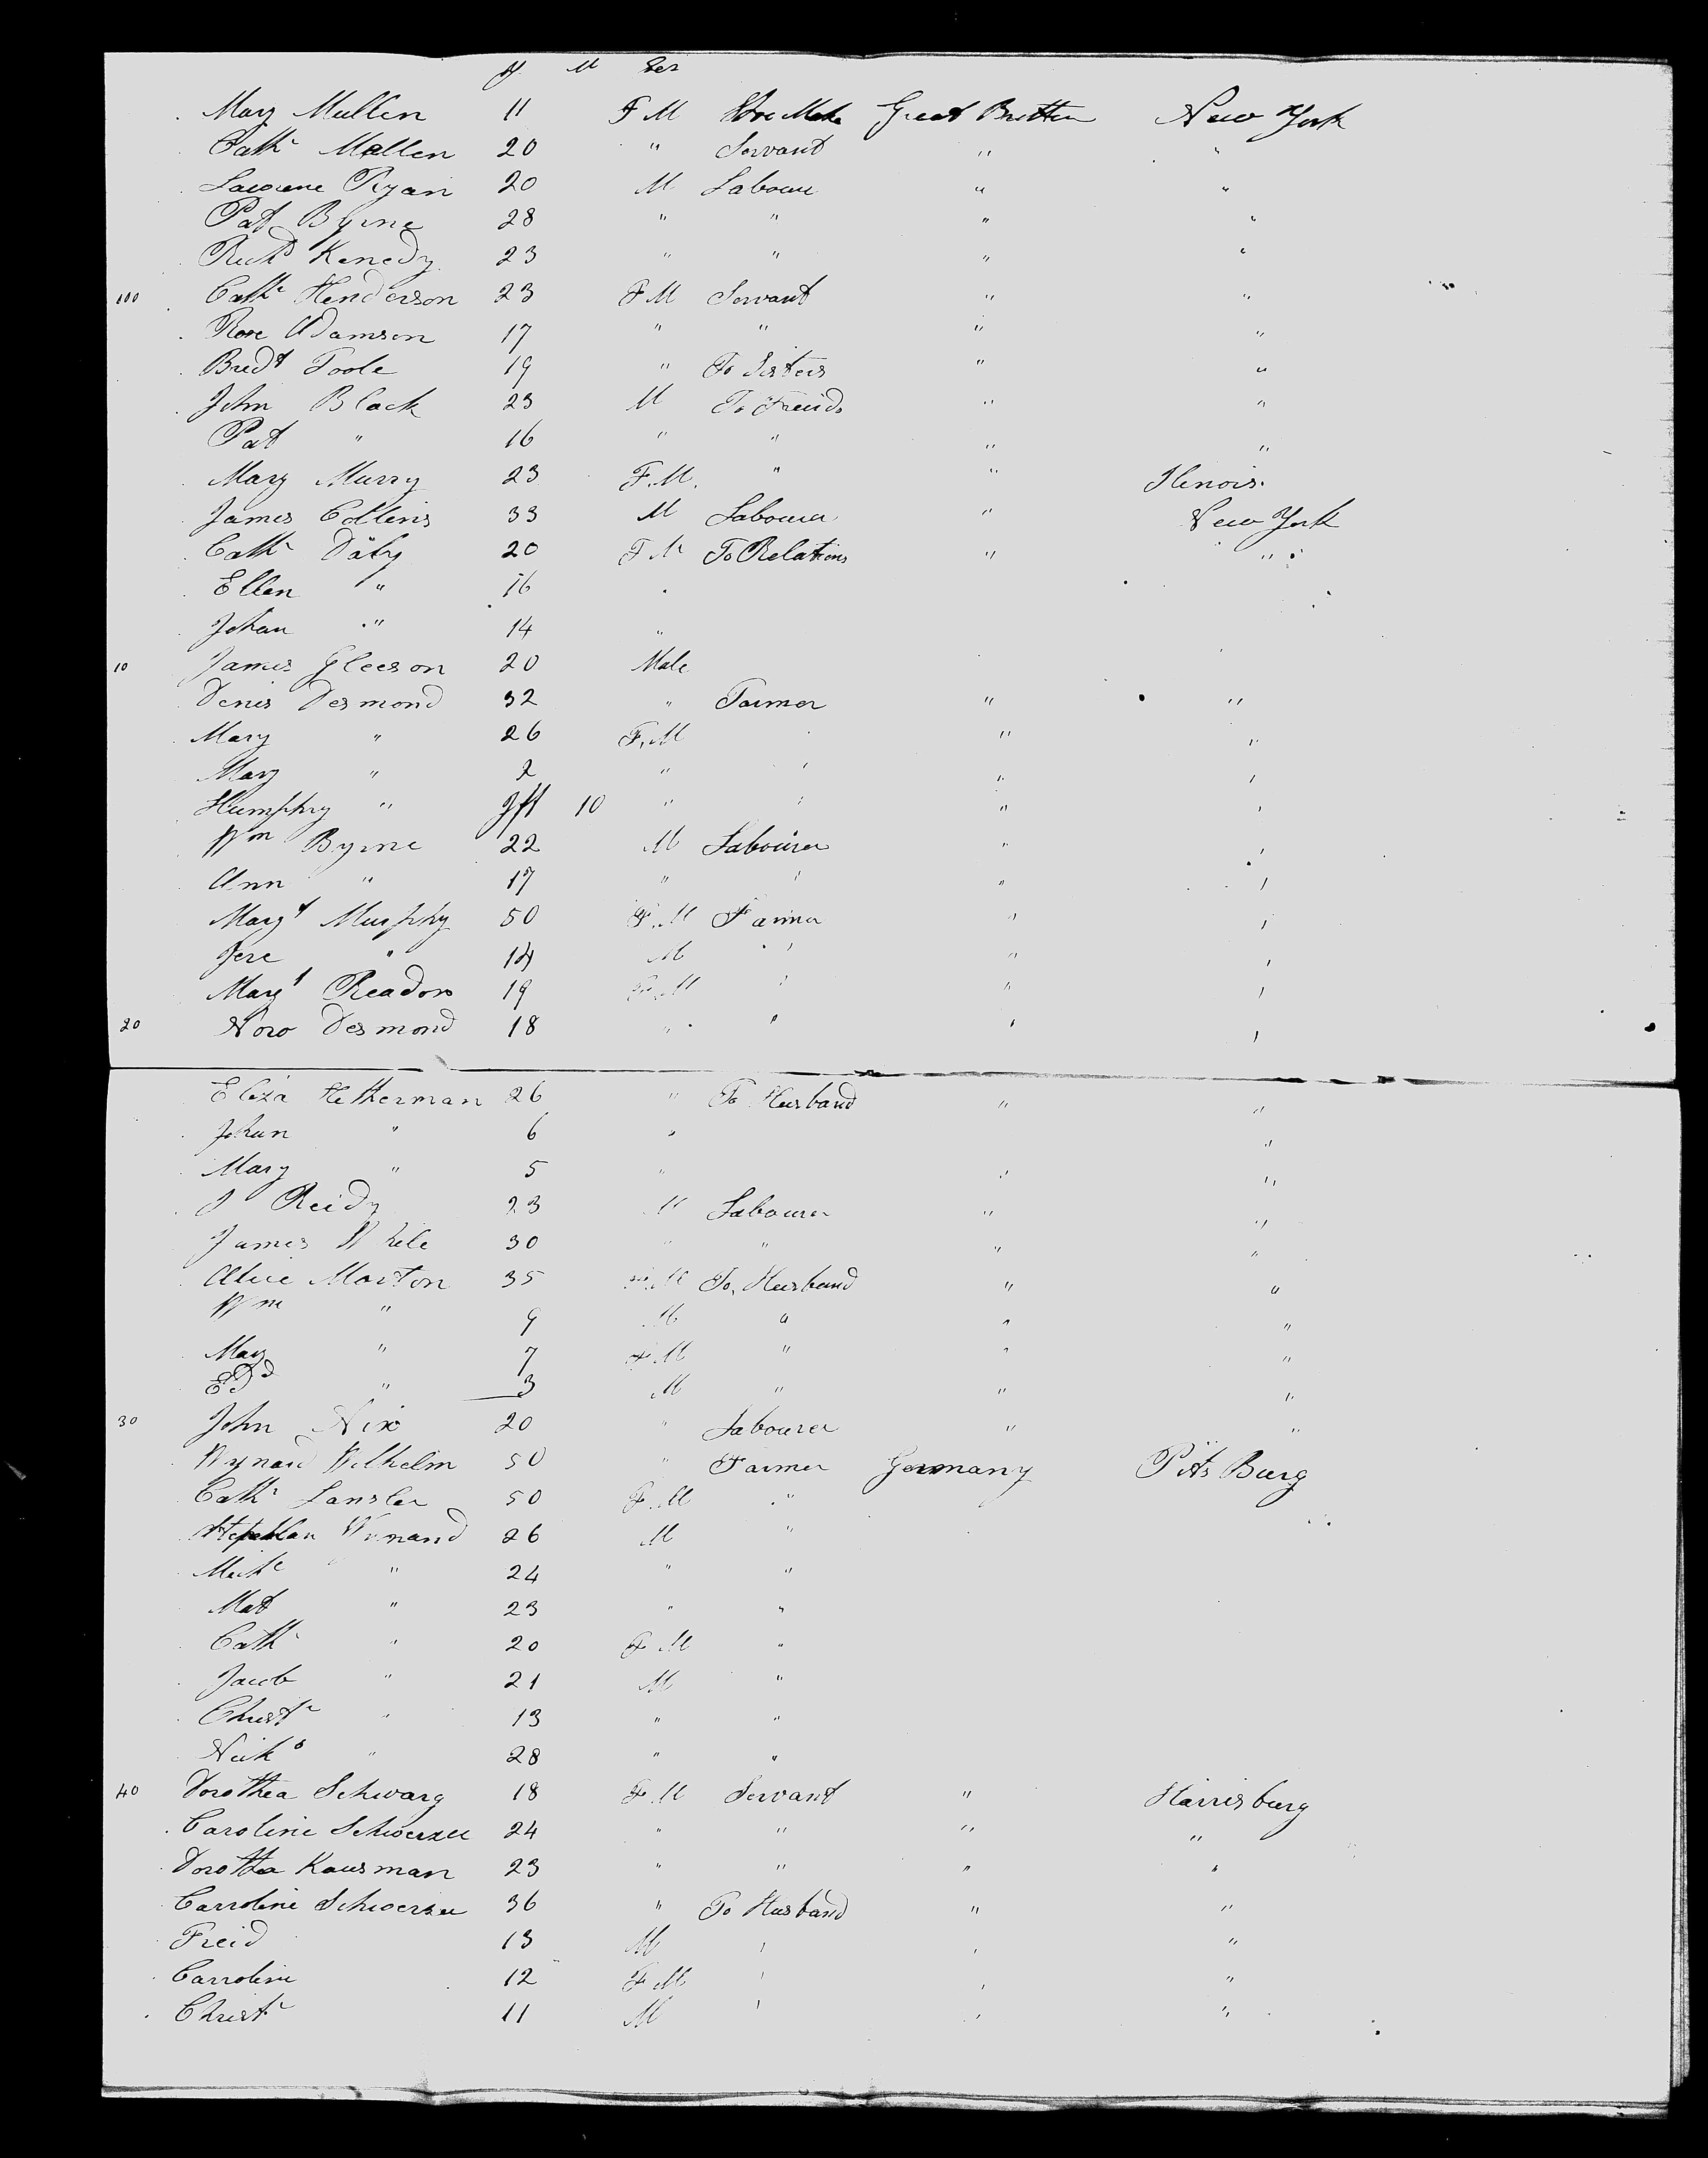 Y M Sex
Mary Mullen 11 F M Great Brittan New York
Cathe Mullen 20 " Servant " "
Laurence Ryan 20 M Labour " "
Pat Byrne 28 " " " "
Richd Kenedy 23 " " " "
100 Cathe Henderson 23 F M Servant " "
Rose Adamson 17 " " " "
Bredt Toole 19 " To Sisters " "
John Black 23 M To Freinds " "
Pat " 16 " " " "
Mary Murry 23 F.M. " " Ilenois.
James Collins 33 M Labourer " New York
Cathe Daly 20 F M To Relations " "
Ellen " 16
Johan " 14 "
10 James Gleeson 20 Male
Denis Desmond 32 " Farmer " "
Mary " 26 F.M " "
Mary " 2 " ' " '
Humphry " Jft 10 " ' " '
Wm Byrne 22 M Labourer " '
Ann " 17 " ' " '
Margt Murphy 50 F.M Farmer " '
Jere " 14 M ' " '
Margt Readon 19 F.M ' " '
20 Noro Desmond 18 " ' ' '
Eliza Hetherman 26 " To Husband " "
Johan " 6 " "
Mary " 5 " " "
J Reidy 23 M Labourer " "
James White 30 " " " "
Alice Morton 35 F.M To Husband " "
Wm " 9 M " " "
Mary " 7 F M " " "
Edd " 3 M " " "
30 John Nix 20 " Labourer " "
Wynand Wilhelm 50 " Farmer Germany Pits Burg
Cathe Lansler 50 F.M "
Wynand 26 M "
Michl " 24 " "
Mat " 23 " "
Cath " 20 F M "
Jacob " 21 M "
Christr " 13 " "
Nichs " 28 " "
40 Dorothea Schwarg 18 F M Servant " Harrisburg
Caroline Schwerzee 24 " " " "
Dorothea Kausman 23 " " " "
Carroline Schwerzee 36 " To Husband " "
Freid 13 M ' ' "
Carroline 12 F M ' ' "
Christr 11 M ' ' "